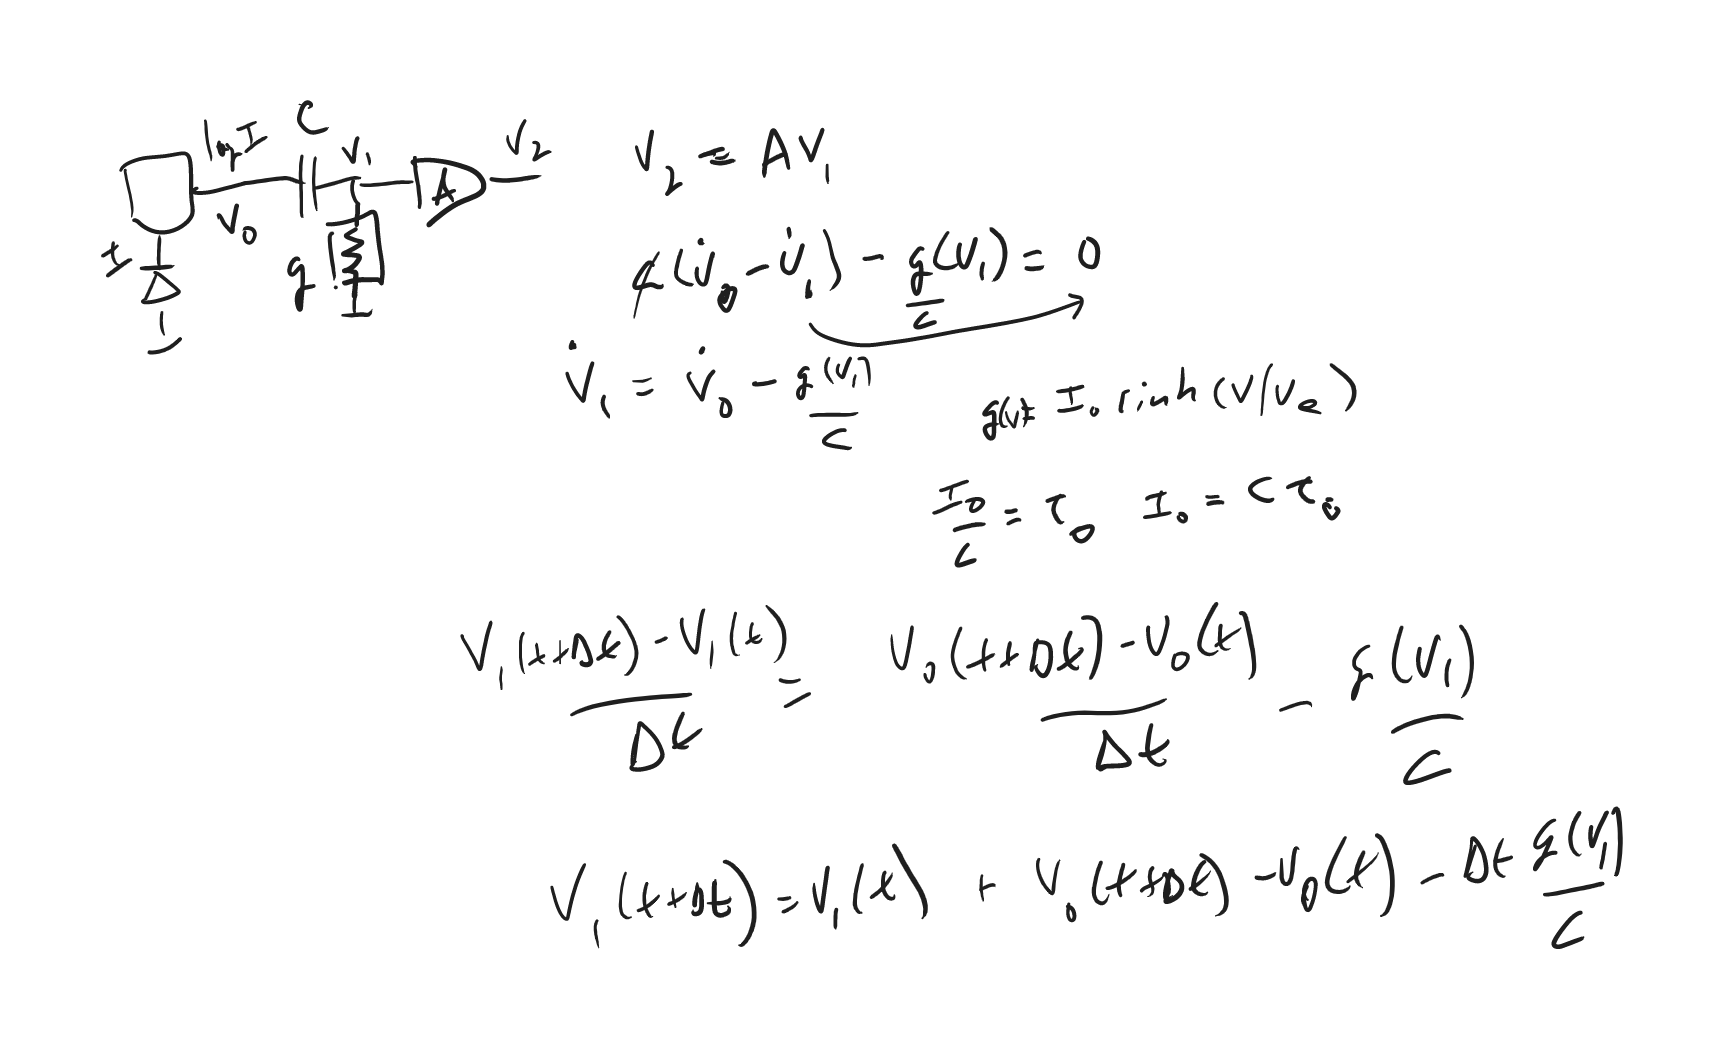 log I C V₁ V₂
V₀ A
I g
V₂ = AV₁
C(V̇₀ - V̇₁) - g(V₁)/C = 0
V̇₁ = V̇₀ - g(V₁)/C
g(V) = I₀ sinh (V/Ve)
I₀/C = τ₀ I₀ = C τ₀
V₁(t+Δt) - V₁(t)/Δt = V₀(t+Δt) - V₀(t)/Δt - g(V₁)/C
V₁(t+Δt) = V₁(t) + V₀(t+Δt) - V₀(t) - Δt g(V₁)/C